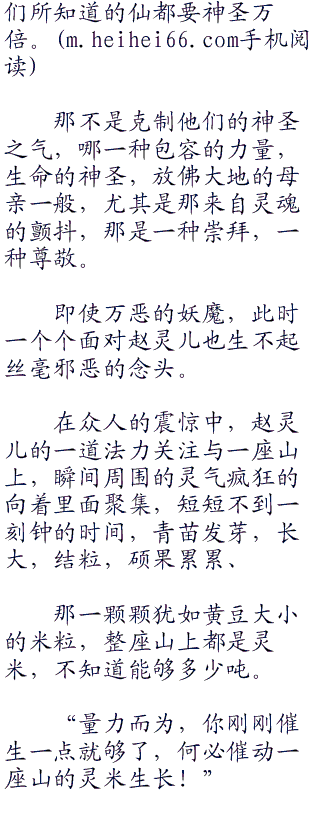 们所知道的仙都要神圣万
倍。(m.heihei66.com手机阅
读)
那不是克制他们的神圣
之气，哪一种包容的力量，
生命的神圣，放佛大地的母
亲一般，尤其是那来自灵魂
的颤抖，那是一种崇拜，一
种尊敬。
即使万恶的妖魔，此时
一个个面对赵灵儿也生不起
丝毫邪恶的念头。
在众人的震惊中，赵灵
儿的一道法力关注与一座山
上，瞬间周围的灵气疯狂的
向着里面聚集，短短不到一
刻钟的时间，青苗发芽，长
大，结粒，硕果累累、
那一颗颗犹如黄豆大小
的米粒，整座山上都是灵
米，不知道能够多少吨。
“量力而为，你刚刚催
生一点就够了，何必催动一
座山的灵米生长！”